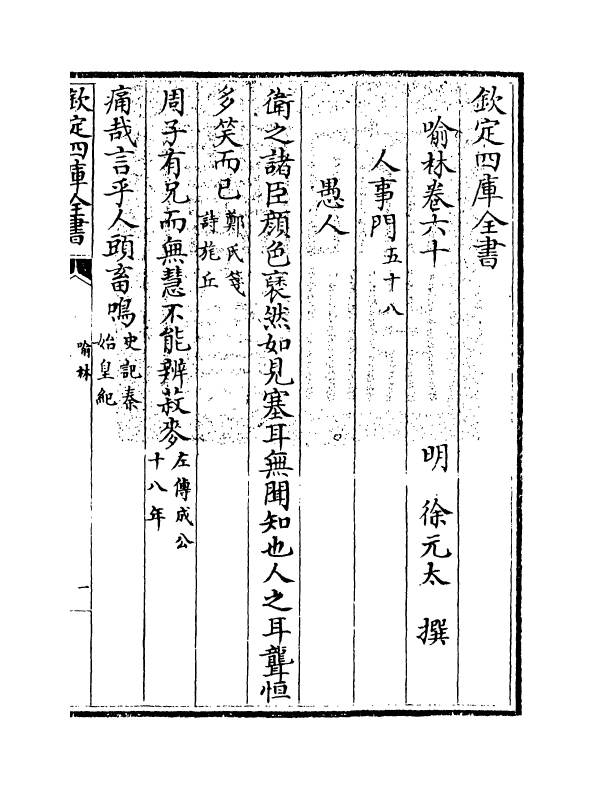 欽定四庫全書
喻林卷六十
明 徐元太 撰
人事門五十八
愚人
衛之諸臣顔色褎然如見塞耳無聞知也人之耳聾恒
多笑而已鄭氏箋
詩旄丘
周子有兄而無慧不能辨菽麥左傳成公
十八年
痛哉言乎人頭畜鳴史記秦
始皇紀
欽定四庫全書
喻林
一